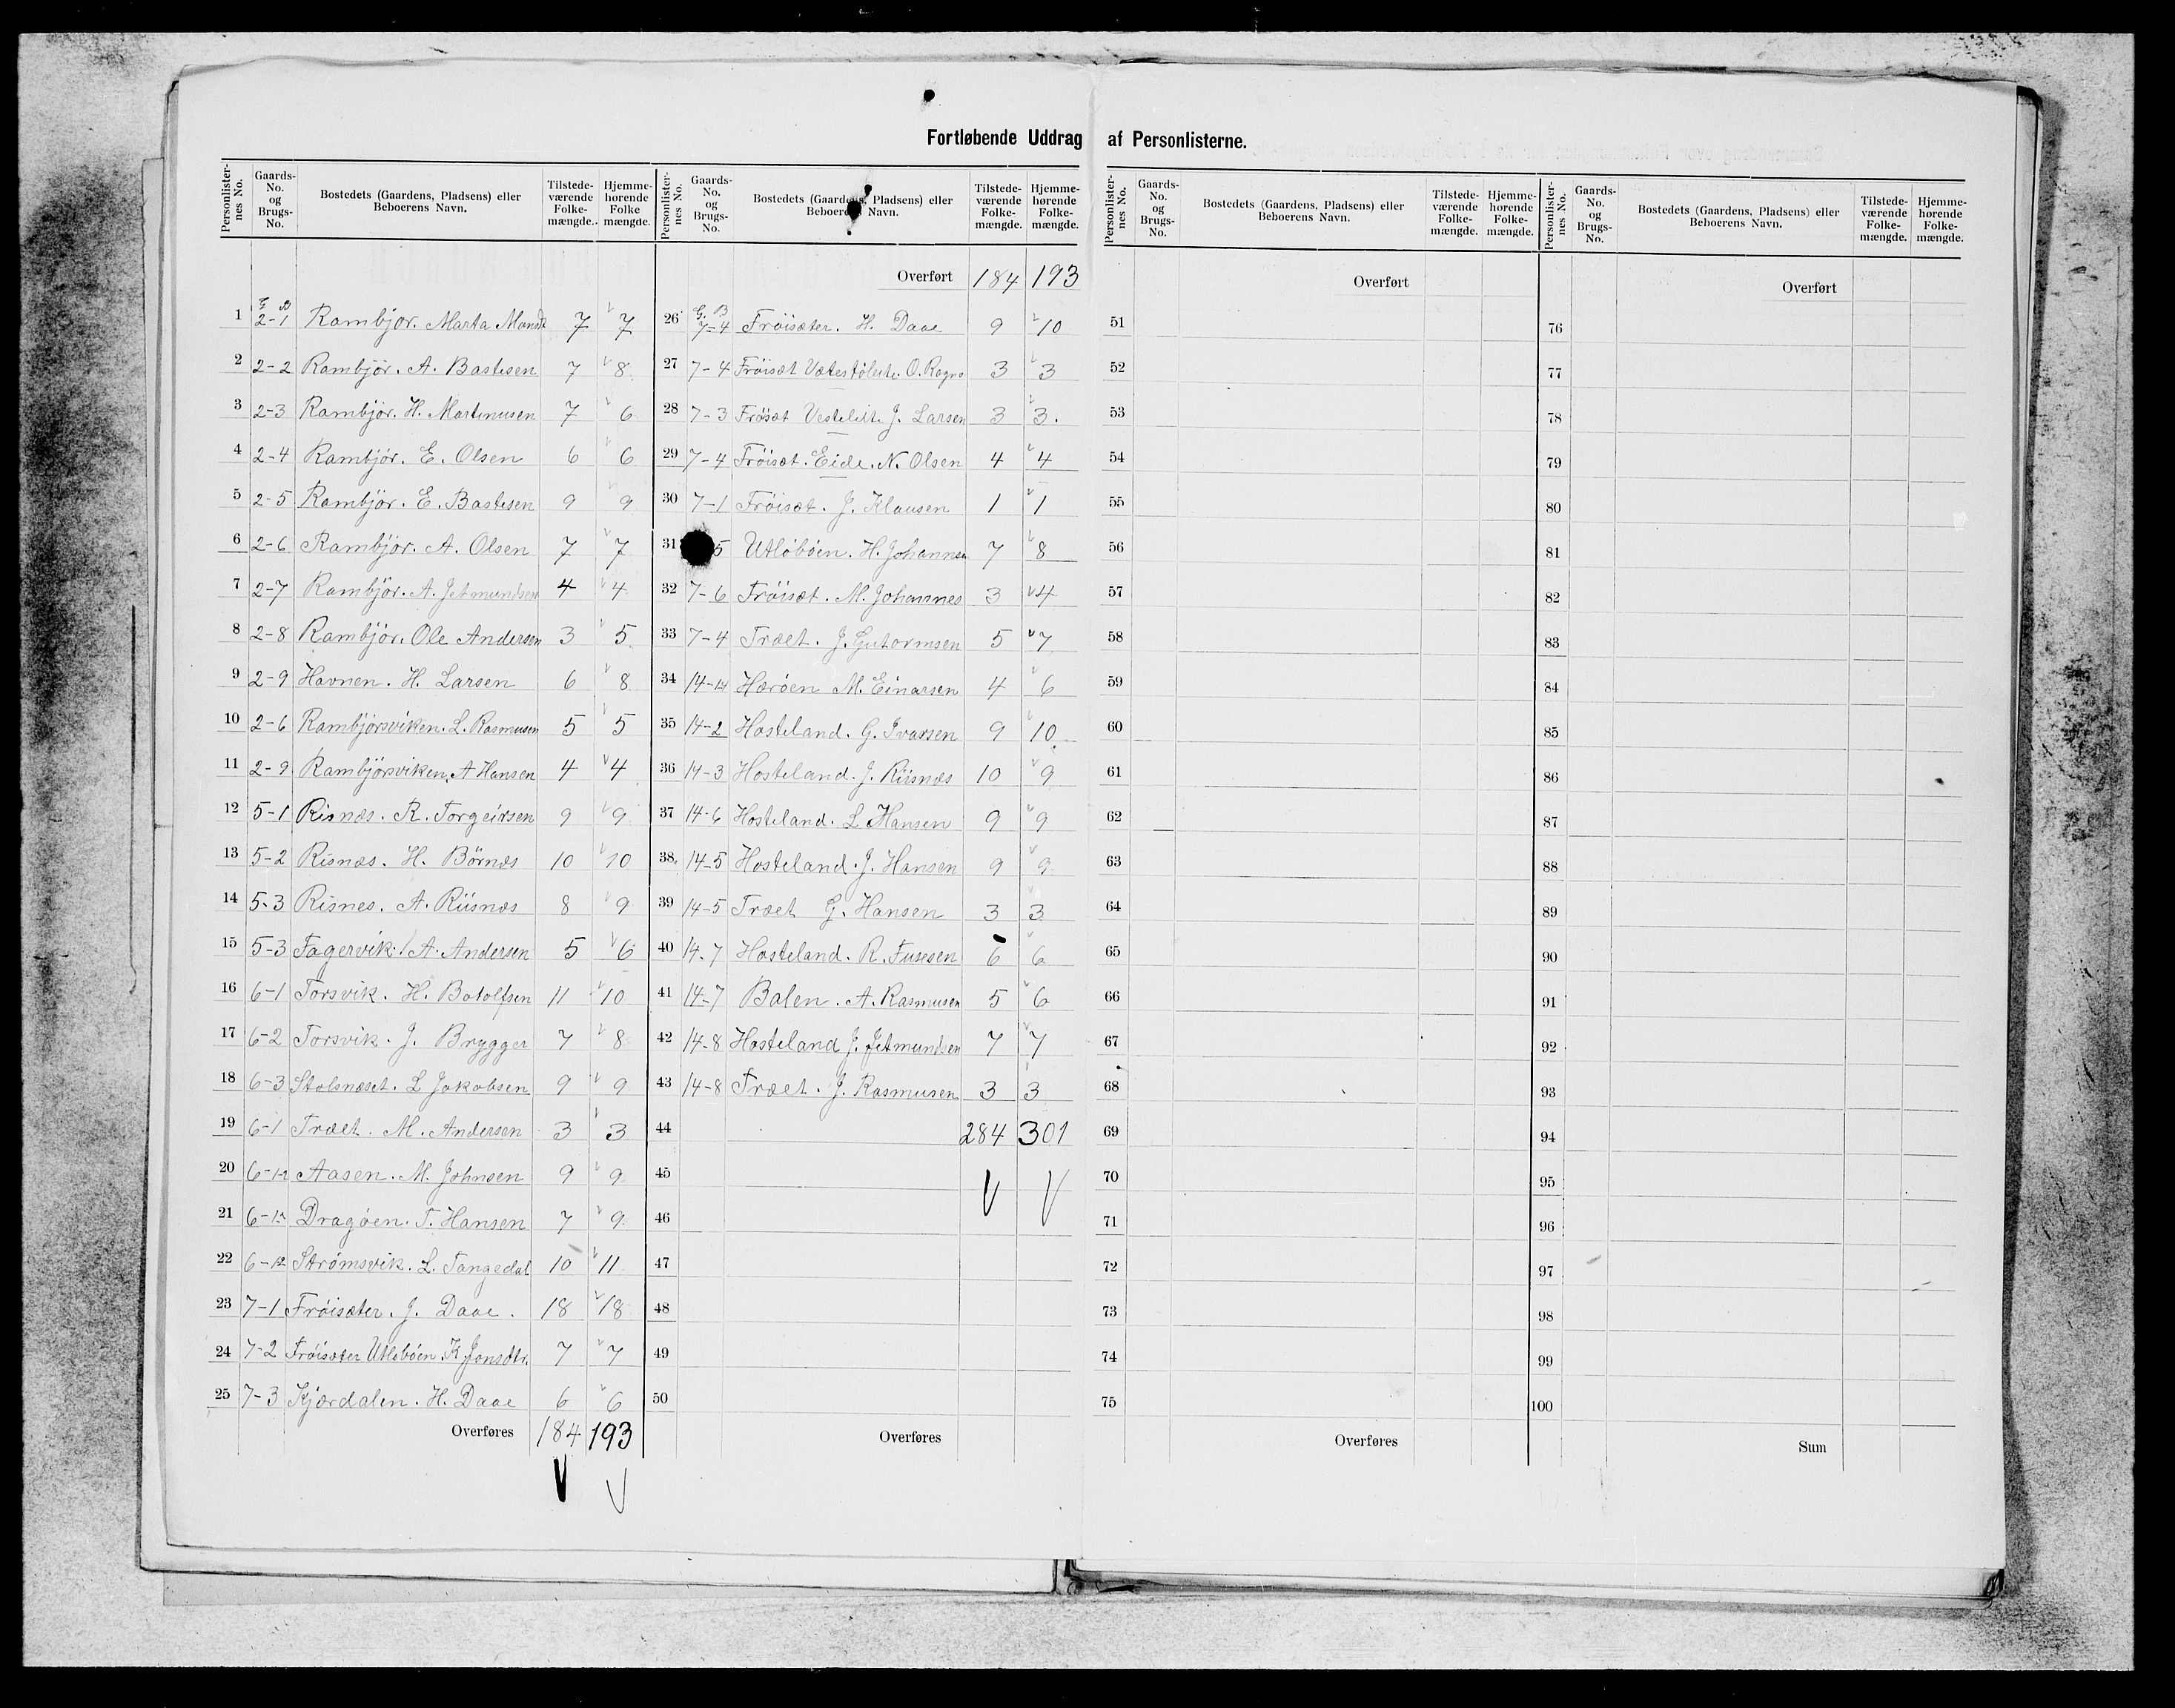 Fortløbende Uddrag af Personlisterne.
Personlisternes No. Gaards-No. og Brugs-No. Bostedets (Gaardens, Pladsens) eller Beboerens Navn. Tilstedeværende Folkemængde. Hjemmehørende Folkemængde.
G B
1 2-1 Rambjør. Marta Monsdt 7 7
2 2-2 Rambjør. A. Bastesen 7 8
3 2-3 Rambjør. H. Martinusen 7 6
4 2-4 Rambjør. E. Olsen 6 6
5 2-5 Rambjør. E. Bastesen 9 9
6 2-6 Rambjør. A. Olsen 7 7
7 2-7 Rambjør. A. Jetmundsen 4 4
8 2-8 Rambjør. Ole Andersen 3 5
9 2-9 Havnen. H. Larsen 6 8
10 2-6 Rambjørsviken. L. Rasmusen 5 5
11 2-9 Rambjørsviken. A Hansen 4 4
12 5-1 Risnæs. R. Torgeirsen 9 9
13 5-2 Risnæs. H. Børnæs 10 10
14 5-3 Risnes. A. Riisnæs 8 9
15 5-3 Fagervik. A. Andersen 5 6
16 6-1 Torsvik. H. Botolfsen 11 10
17 6-2 Torsvik. J. Brygger 7 8
18 6-3 Stolsnæset. L Jakobsen 9 9
19 6-1 Træet. M. Andersen 3 3
20 6-12 Aasen. M. Johnsen 9 9
21 6- Dragøen. T. Hansen 7 9
22 6-12 Strømsvik. L. Tangedal 10 11
23 7-1 Frøisæter. J. Daae. 18 18
24 7-2 Frøisæter Utløbøen. K Jonsdtr. 7 7
25 7-3 Kjærdalen. H. Daae 6 6
Overføres 184 193
Personlisternes No. Gaards-No. og Brugs-No. Bostedets (Gaardens, Pladsens) eller Beboerens Navn. Tilstedeværende Folkemængde. Hjemmehørende Folkemængde.
Overført 184 193
G. B
26 7-4 Frøisæter. H. Daae 9 10
27 7-4 Frøisæt O. Ragns 3 3
28 7-3 Frøsæt J. Larsen 3 3.
29 7-4 Frøisæt. Eide. N. Olsen 4 4
30 7-1 Frøisæt. J. Klausen 1 1
31 5 Utløbøen. H. Johannsen 7 8
32 7-6 Frøisæt. M. Johannes 3 4
33 7-4 Træet. J. Gutormsen 5 7
34 14- Hærøen M. Einarsen 4 6
35 14-2 Hosteland. G. Ivarsen 9 10
36 14-3 Hosteland. J. Riisnæs 10 9
37 14-6 Hosteland. L Hansen 9 9
38 14-5 Hosteland. J. Hansen 9 9
39 14-5 Træet G. Hansen 3 3
40 14-7 Hosteland. R. Fusesen 6 6
41 14-7 Balen. A. Rasmusen 5 6
42 14-8 Hosteland J. Jetmundsen 7 7
43 14-8 Træet. J. Rasmusen 3 3
44 284 301
45
46
47
48
49
50
Overføres
Personlisternes No. Gaards-No. og Brugs-No. Bostedets (Gaardens, Pladsens) eller Beboerens Navn. Tilstedeværende Folkemængde. Hjemmehørende Folkemængde.
Overført
51
52
53
54
55
56
57
58
59
60
61
62
63
64
65
66
67
68
69
70
71
72
73
74
75
Overføres
Personlisternes No. Gaards-No. og Brugs-No. Bostedets (Gaardens, Pladsens) eller Beboerens Navn. Tilstedeværende Folkemængde. Hjemmehørende Folkemængde.
Overført
76
77
78
79
80
81
82
83
84
85
86
87
88
89
90
91
92
93
94
95
96
97
98
99
100
Sum